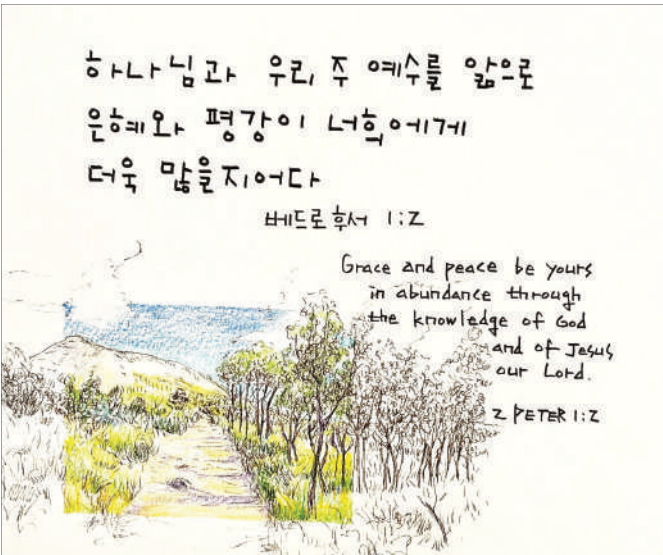 하나님과 우리 주 예수를 앎으로
은혜와 평강이 너희에게
더욱 많을지어다
베드로후서 1:2
Grace and peace be yours
in abundance through
the knowledge of God
and of Jesus
our Lord.
2 PETER 1:2